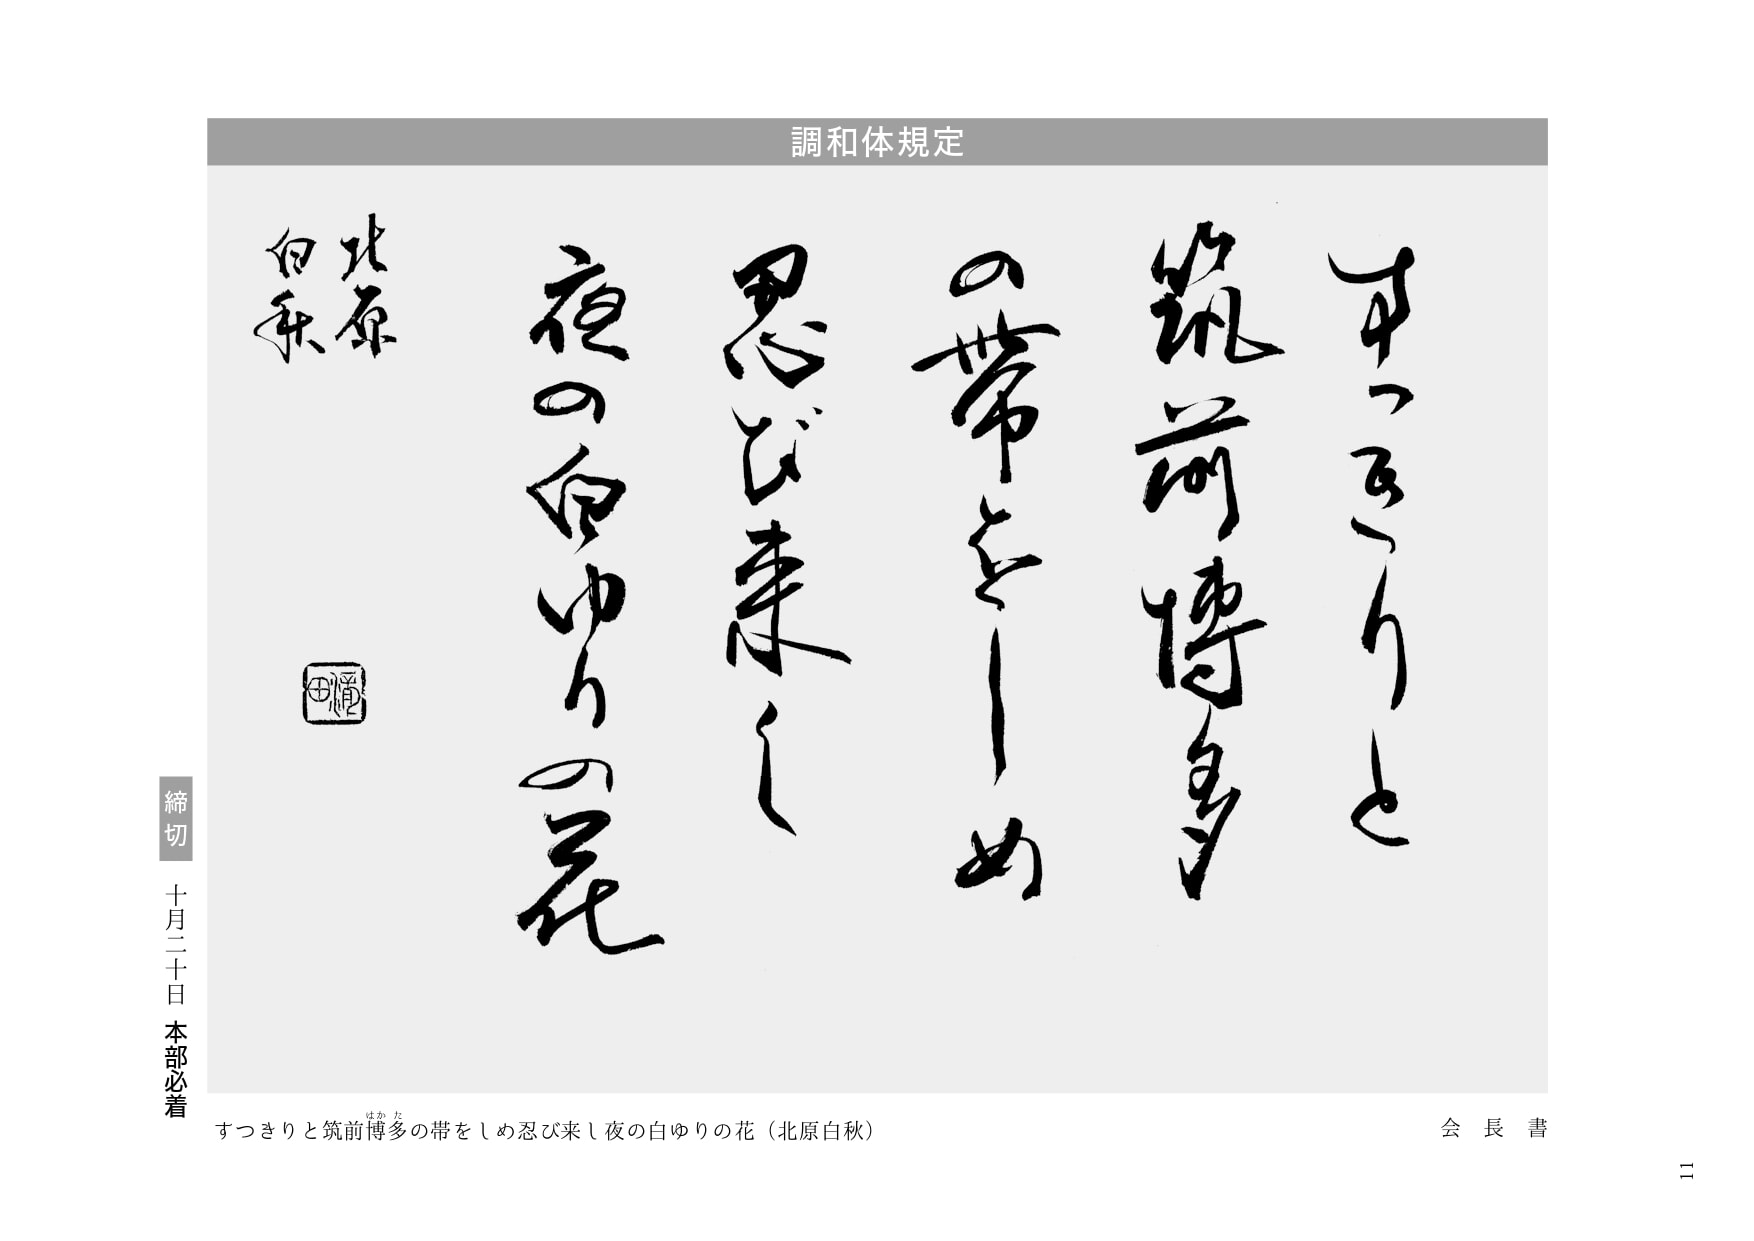 調和体規定
すつきりと
筑前博多
の帯をしめ
忍び来し
夜の白ゆりの花
北原
白秋
滝田
締切 十月二十日 本部必着
すつきりと筑前博多の帯をしめ忍び来し夜の白ゆりの花（北原白秋）
はかた
会長書
11